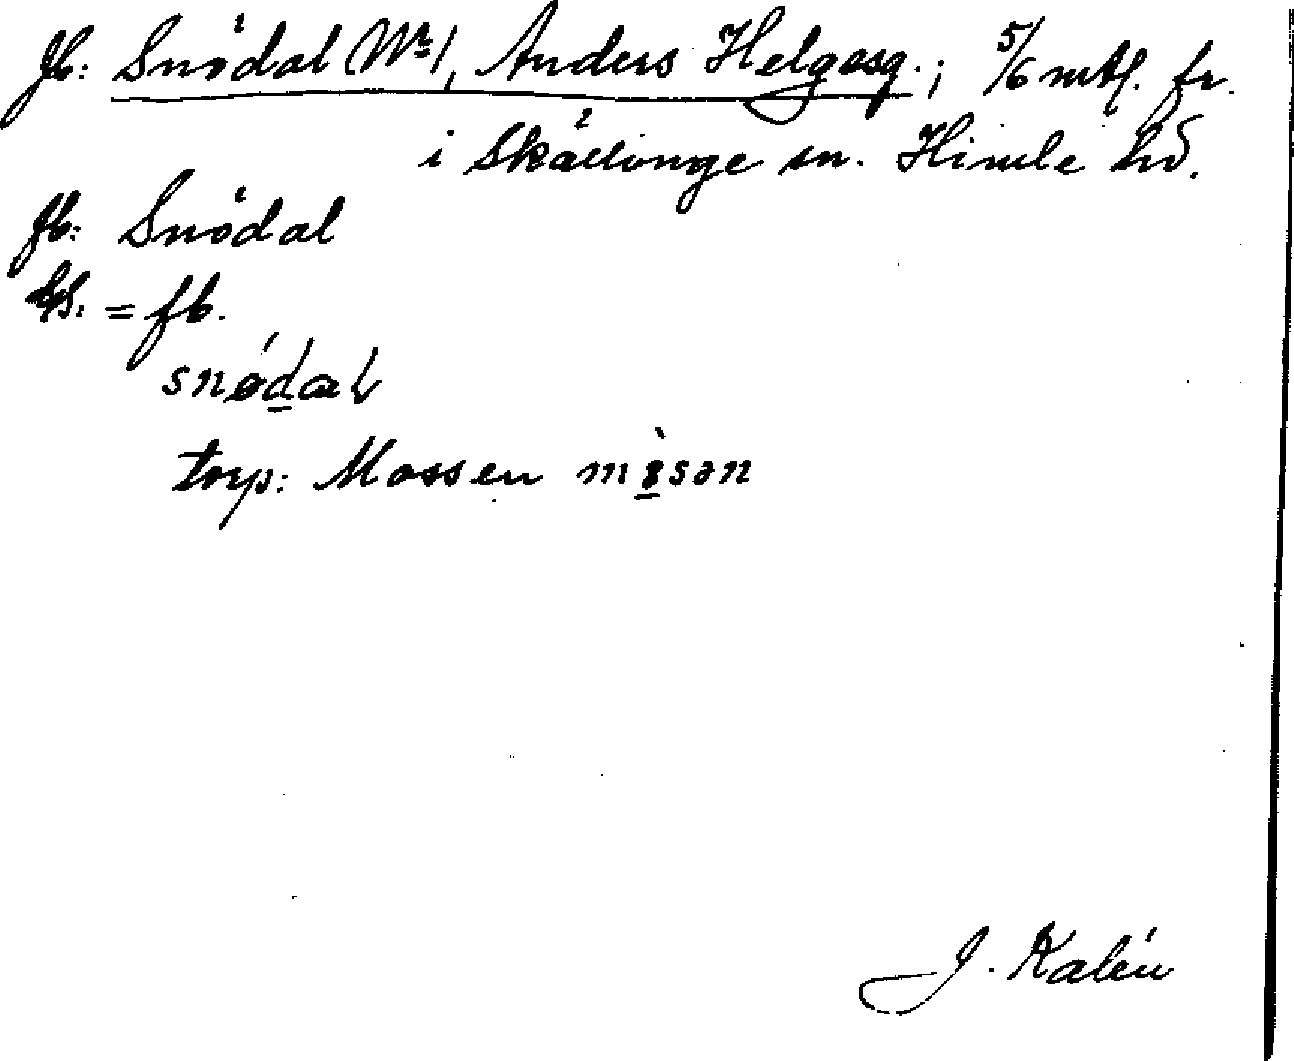 fb: Snödal (Nr), Anders Helgasg.; 5/6 mtl. fr.
i Skällinge sn. Himle hd.
fb: Snödal
= fb.
snødal
torp: Mossen
J. Kalén